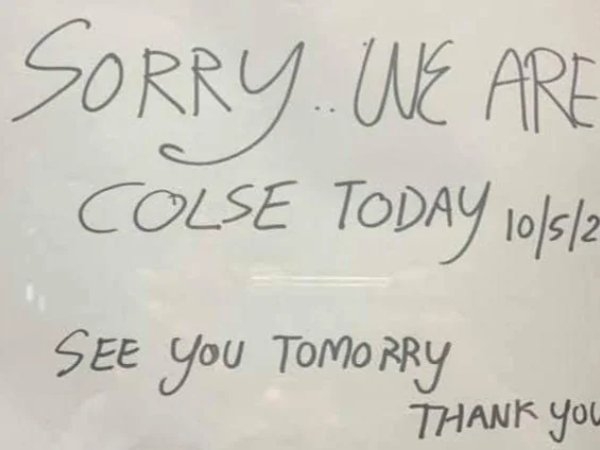 SORRY.. WE ARE
COLSE TODAY 10/5/2
SEE YOU TOMORRY
THANK YOU